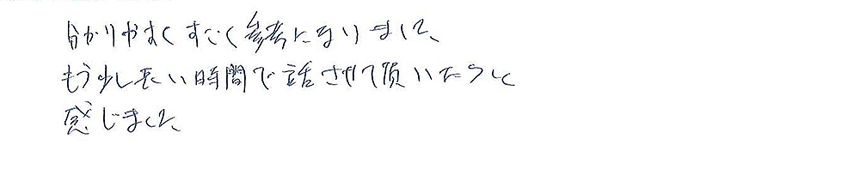 分かりやすくすごく参考になりました、
もう少し長い時間で話させて頂いたらと
感じました、